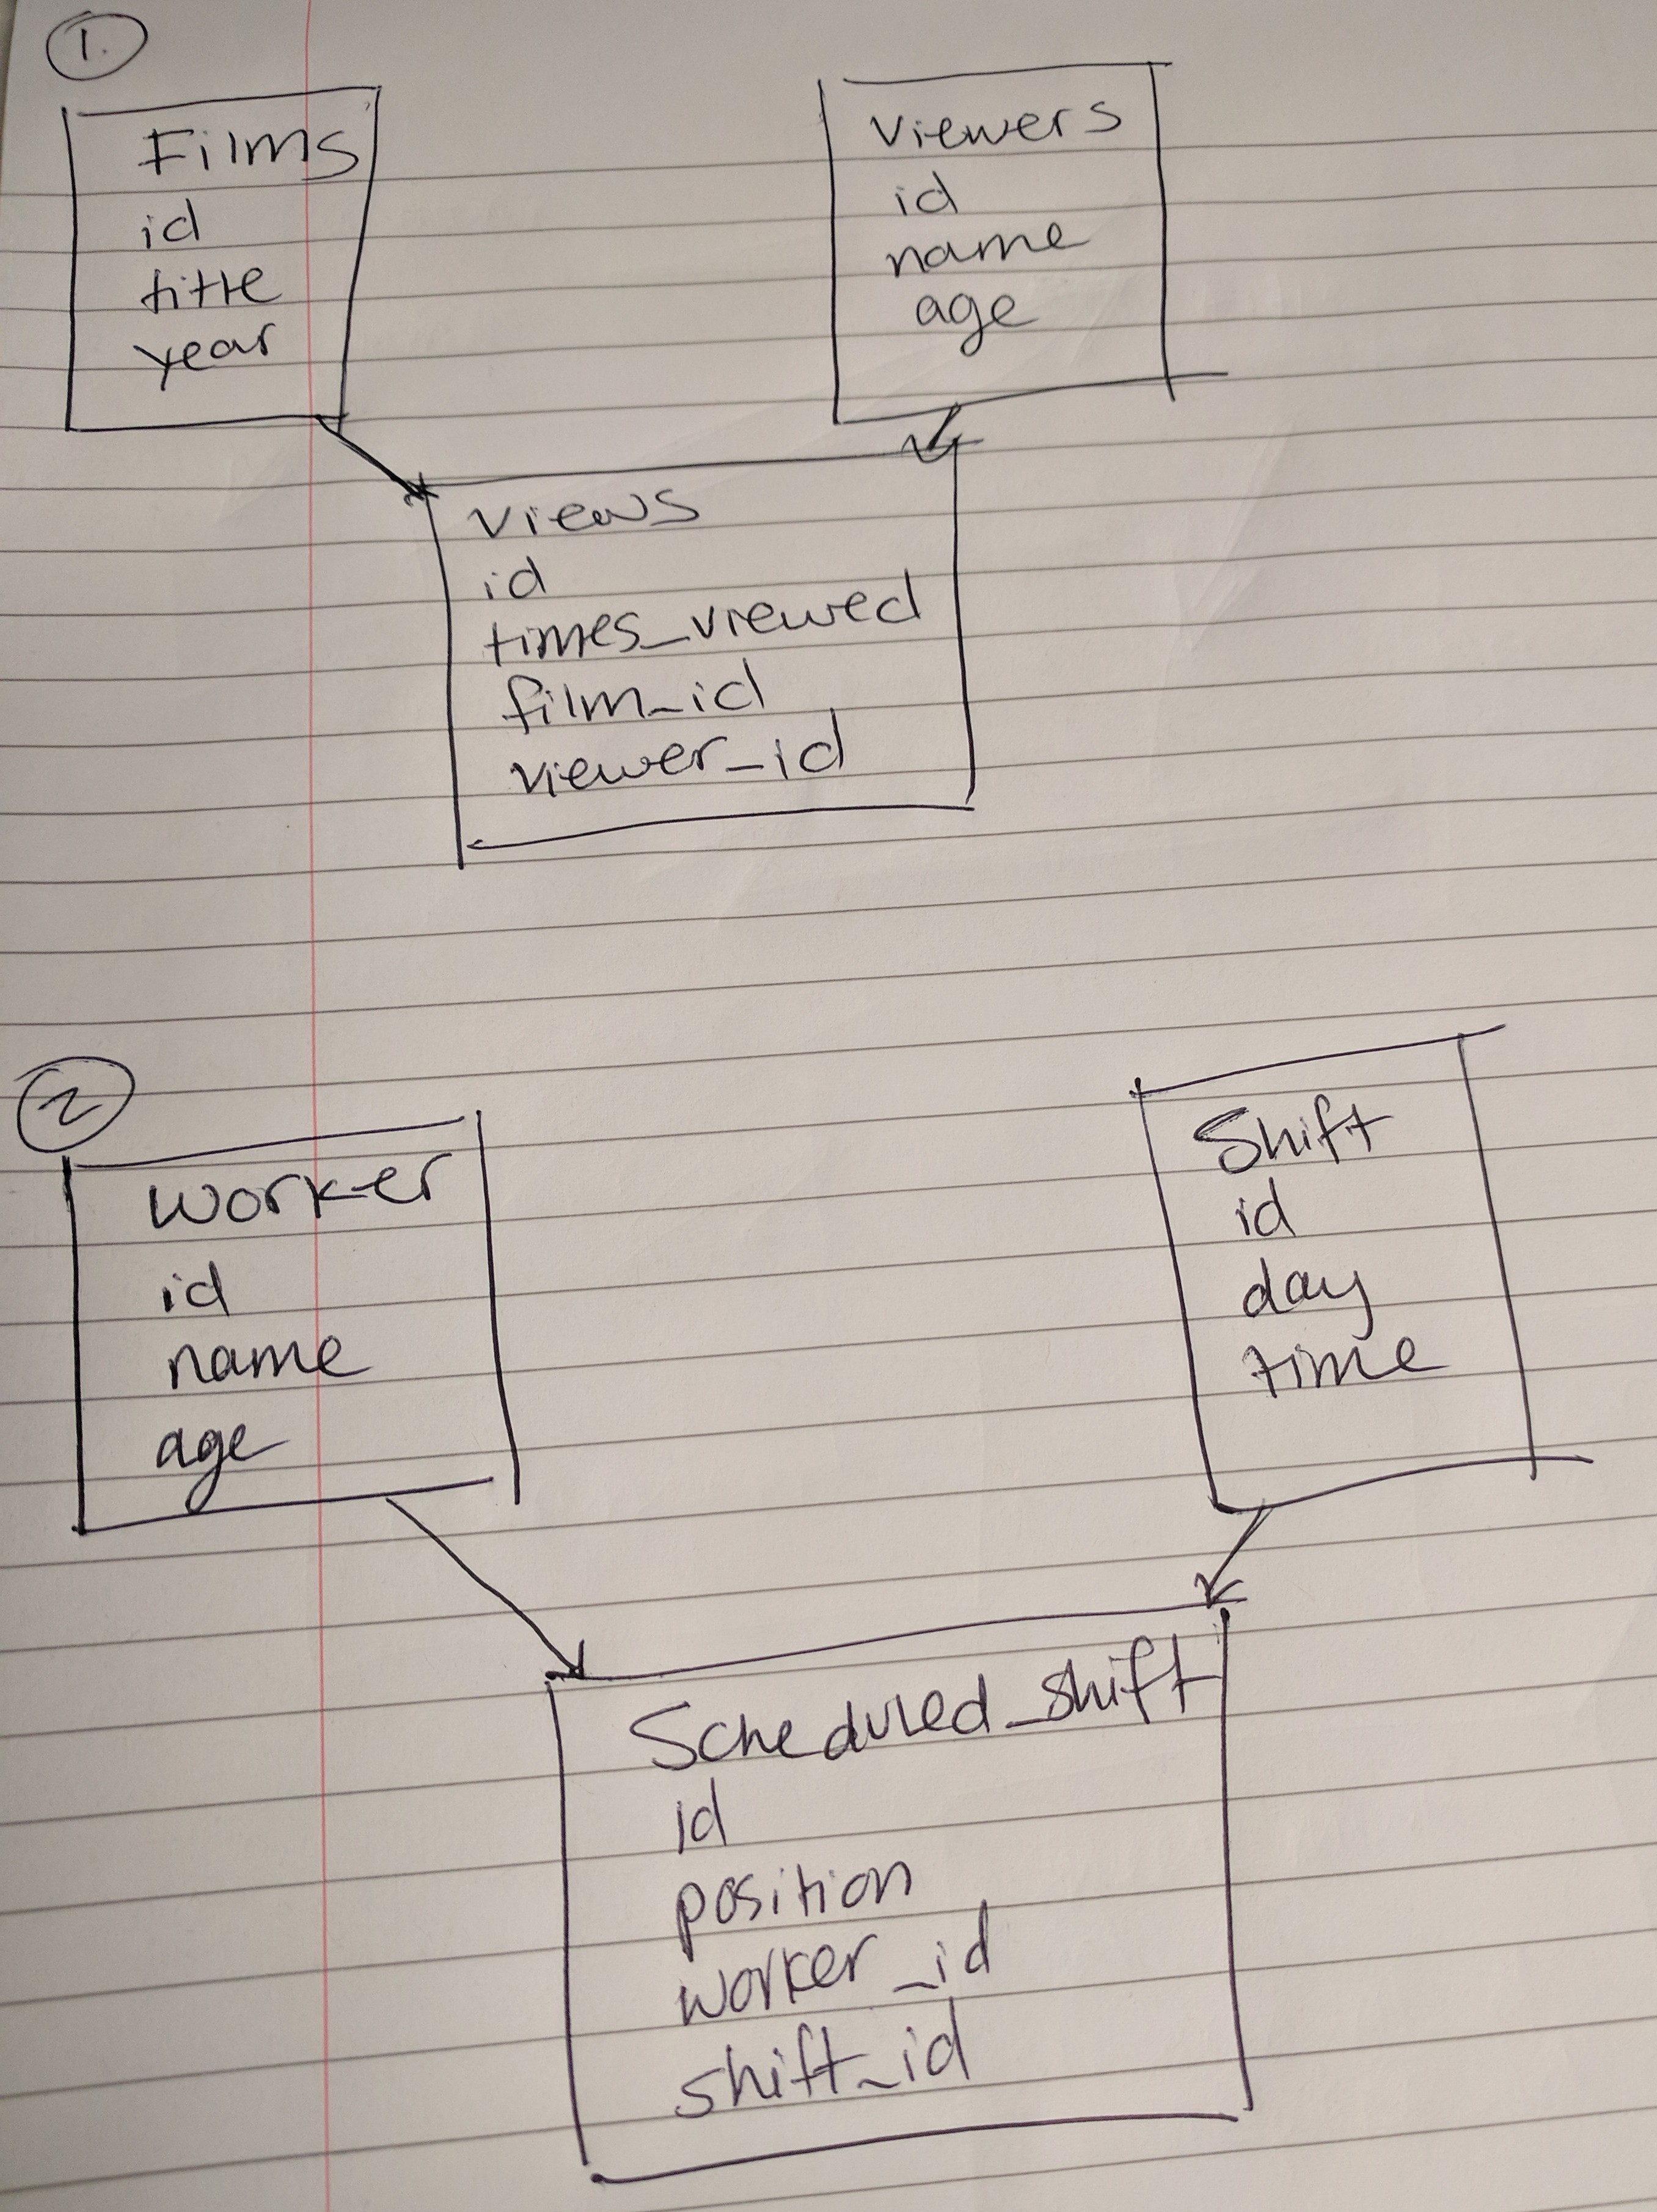 1.
Films
id
title
year
Viewers
id
name
age
Views
id
times_viewed
film_id
viewer_id
2
Worker
id
name
age
Shift
id
day
time
Scheduled_shift
id
position
worker_id
shift_id